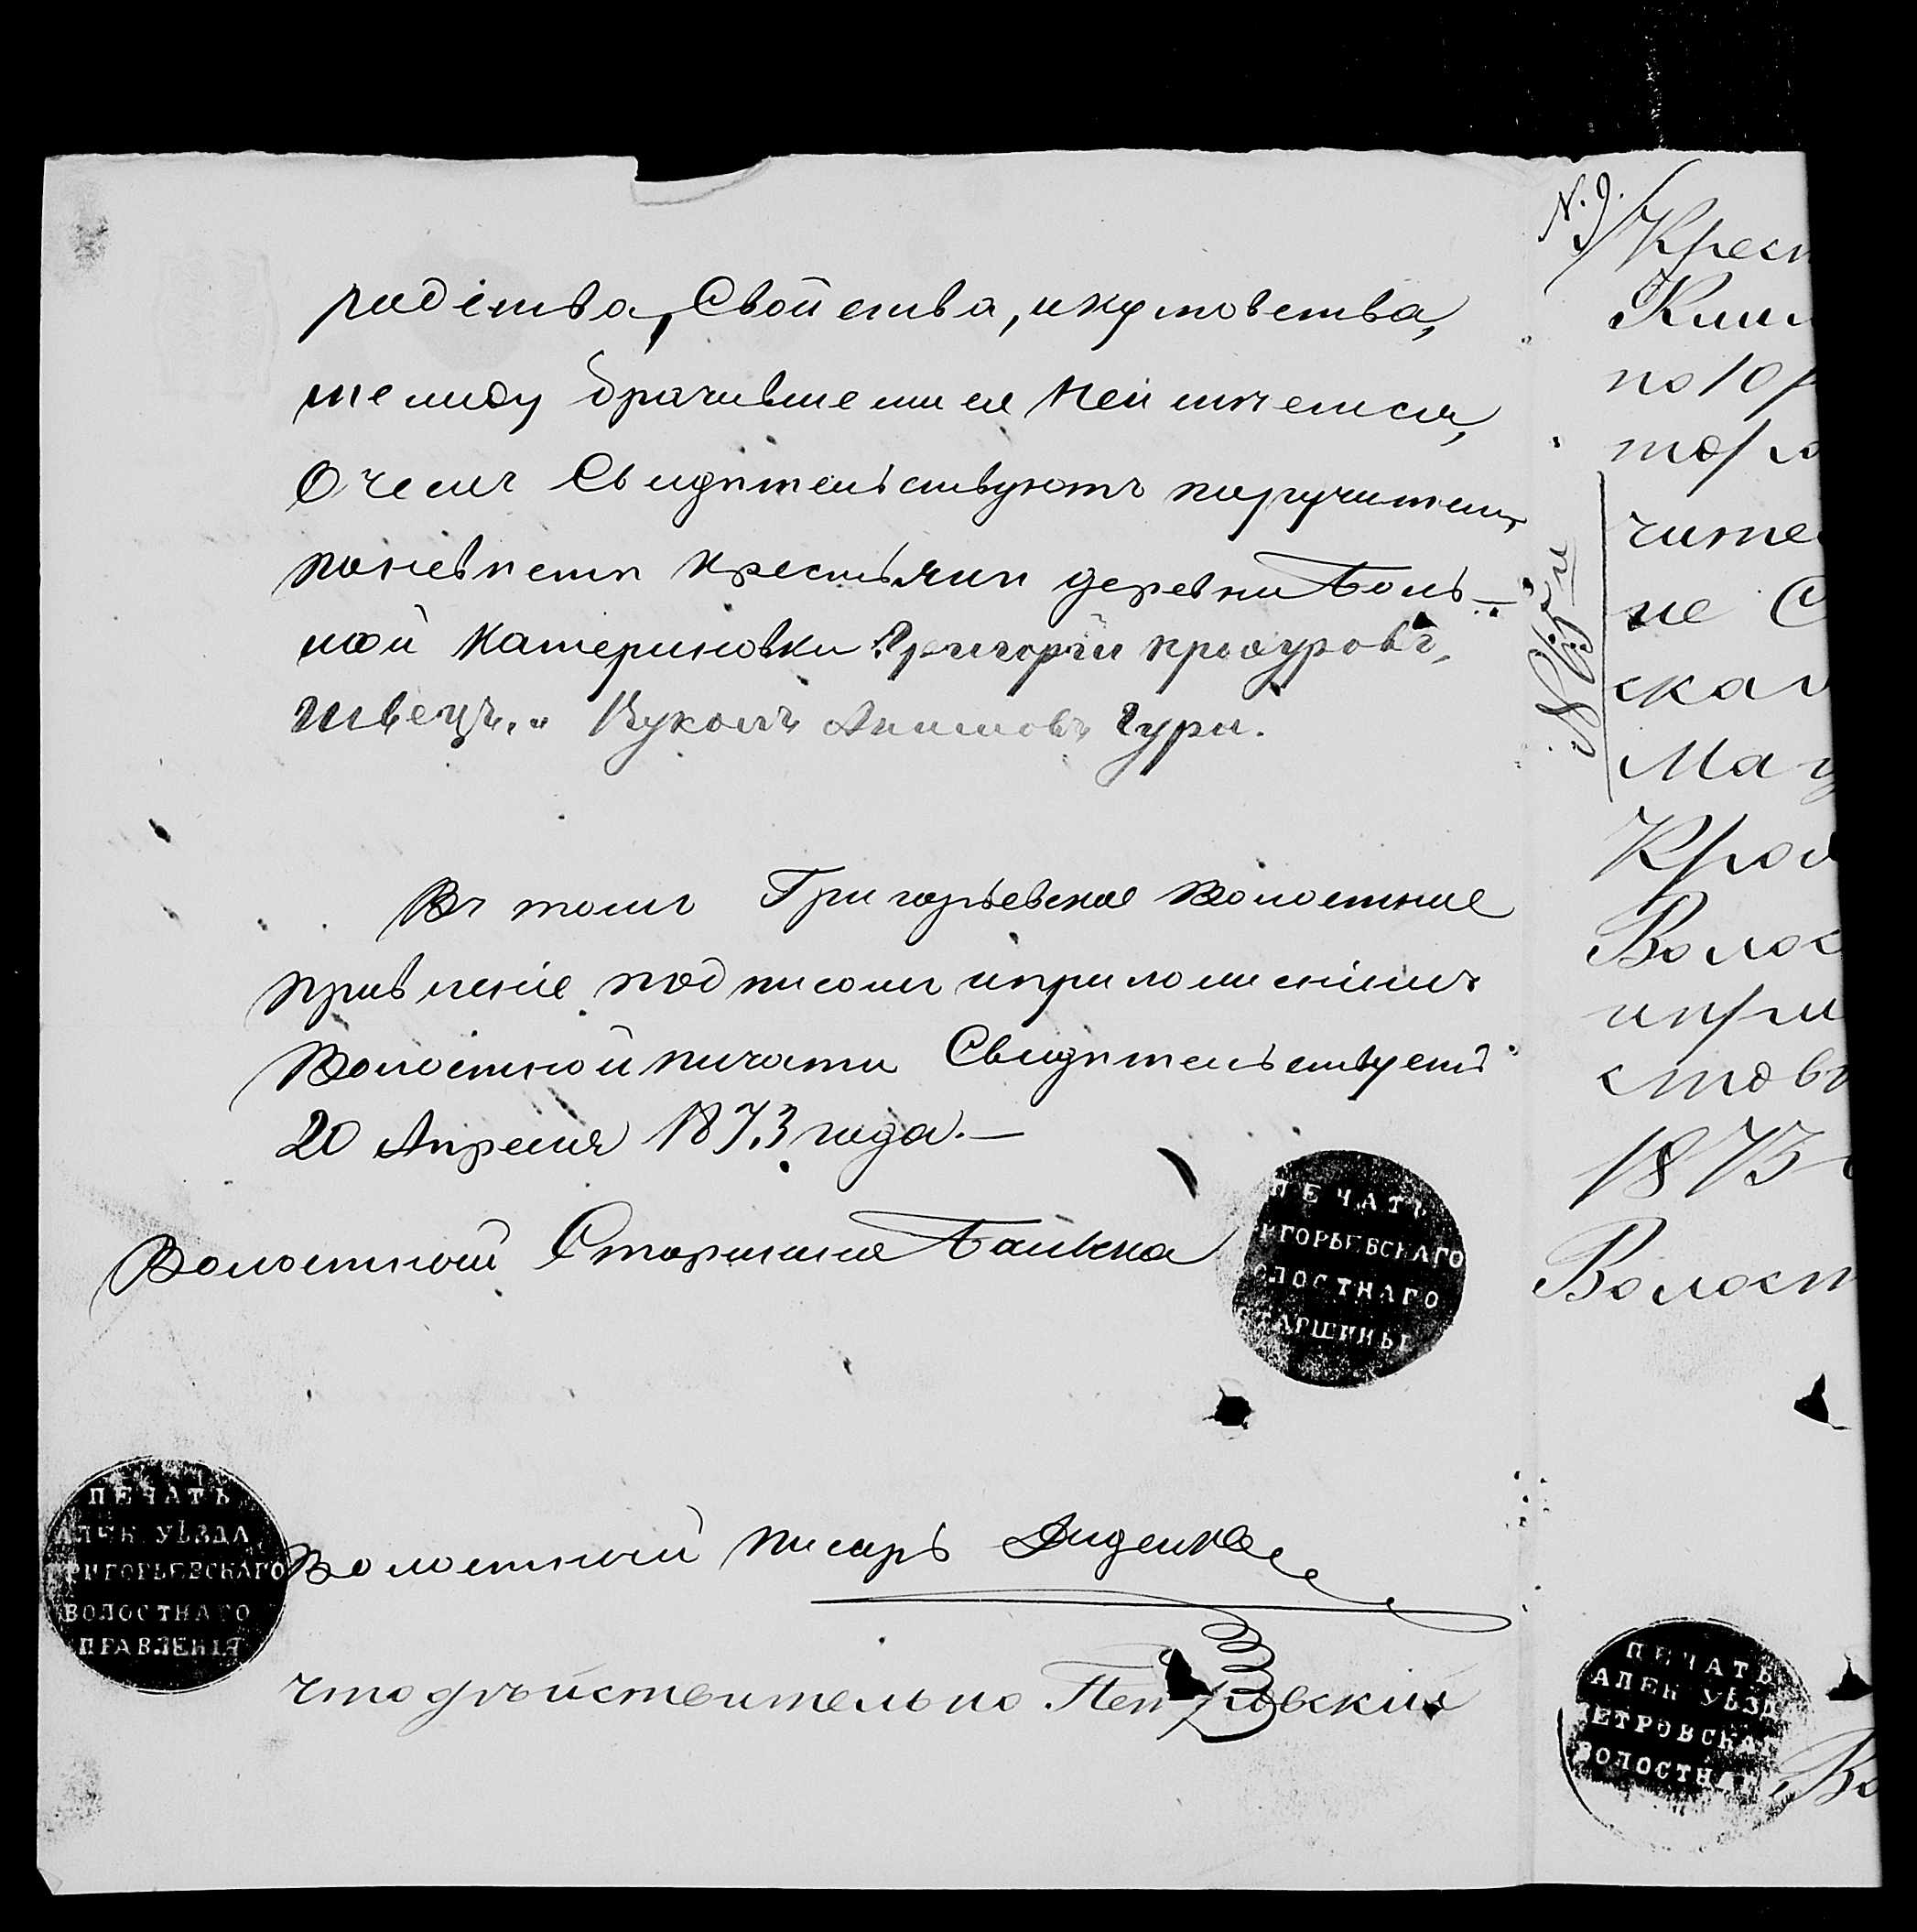 родства, Свойства, икумовства,
междy брачившемися Неимѣется,
О чемъ Свидѣтельствуютъ поручители
поневѣстѣ крестьяни деревни Боль-
шой Катериновки Григорій
Швецъ,, Вуколъ Акимовъ Гура.
Въ томъ Григорьевское Волостное
правленіе подписомъ иприложеніемъ
Волостной пичати Свидѣтельствуетъ
20 Апреля 1873 года.—
Волостной Старшина Байкка
ПЕЧАТЬ
ИГОРЬЕВСКАГО
ОЛОСТНАГО
СТАРШИНЫ
ПЕЧАТЬ
АЛЕК УѢЗДА
РИГОРЬЕВСКАГО
ВОЛОСТНАГО
ПРАВЛЕНІЯ
Волостной писарь Диденко
что дѣйствительно Петровскій
N. 9. Крест
Клим
по 10 р
тор
чите
не С
скаг
Ма
Кро
Волос
ипри
ство
1873
Волост
ПЕЧАТЬ
АЛЕК УѢЗД
ПЕТРОВСКАГ
ВОЛОСТНАГ
Во